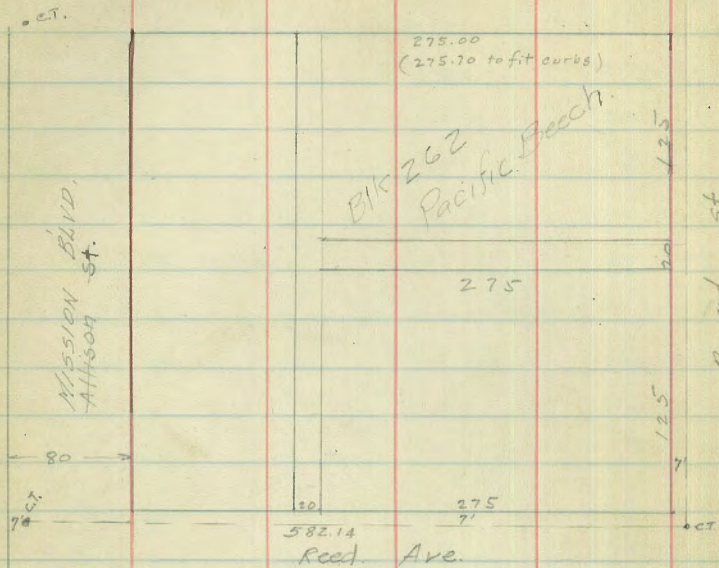 C.T.
275.00
(275.70 to fit curbs)
125
Blk 262
Pacific Beech.
MISSION BLVD.
Allison St.
20
275
St
125
80
7'
C.T.
7'
20
275
7'
582.14
C.T.
Reed. Ave.